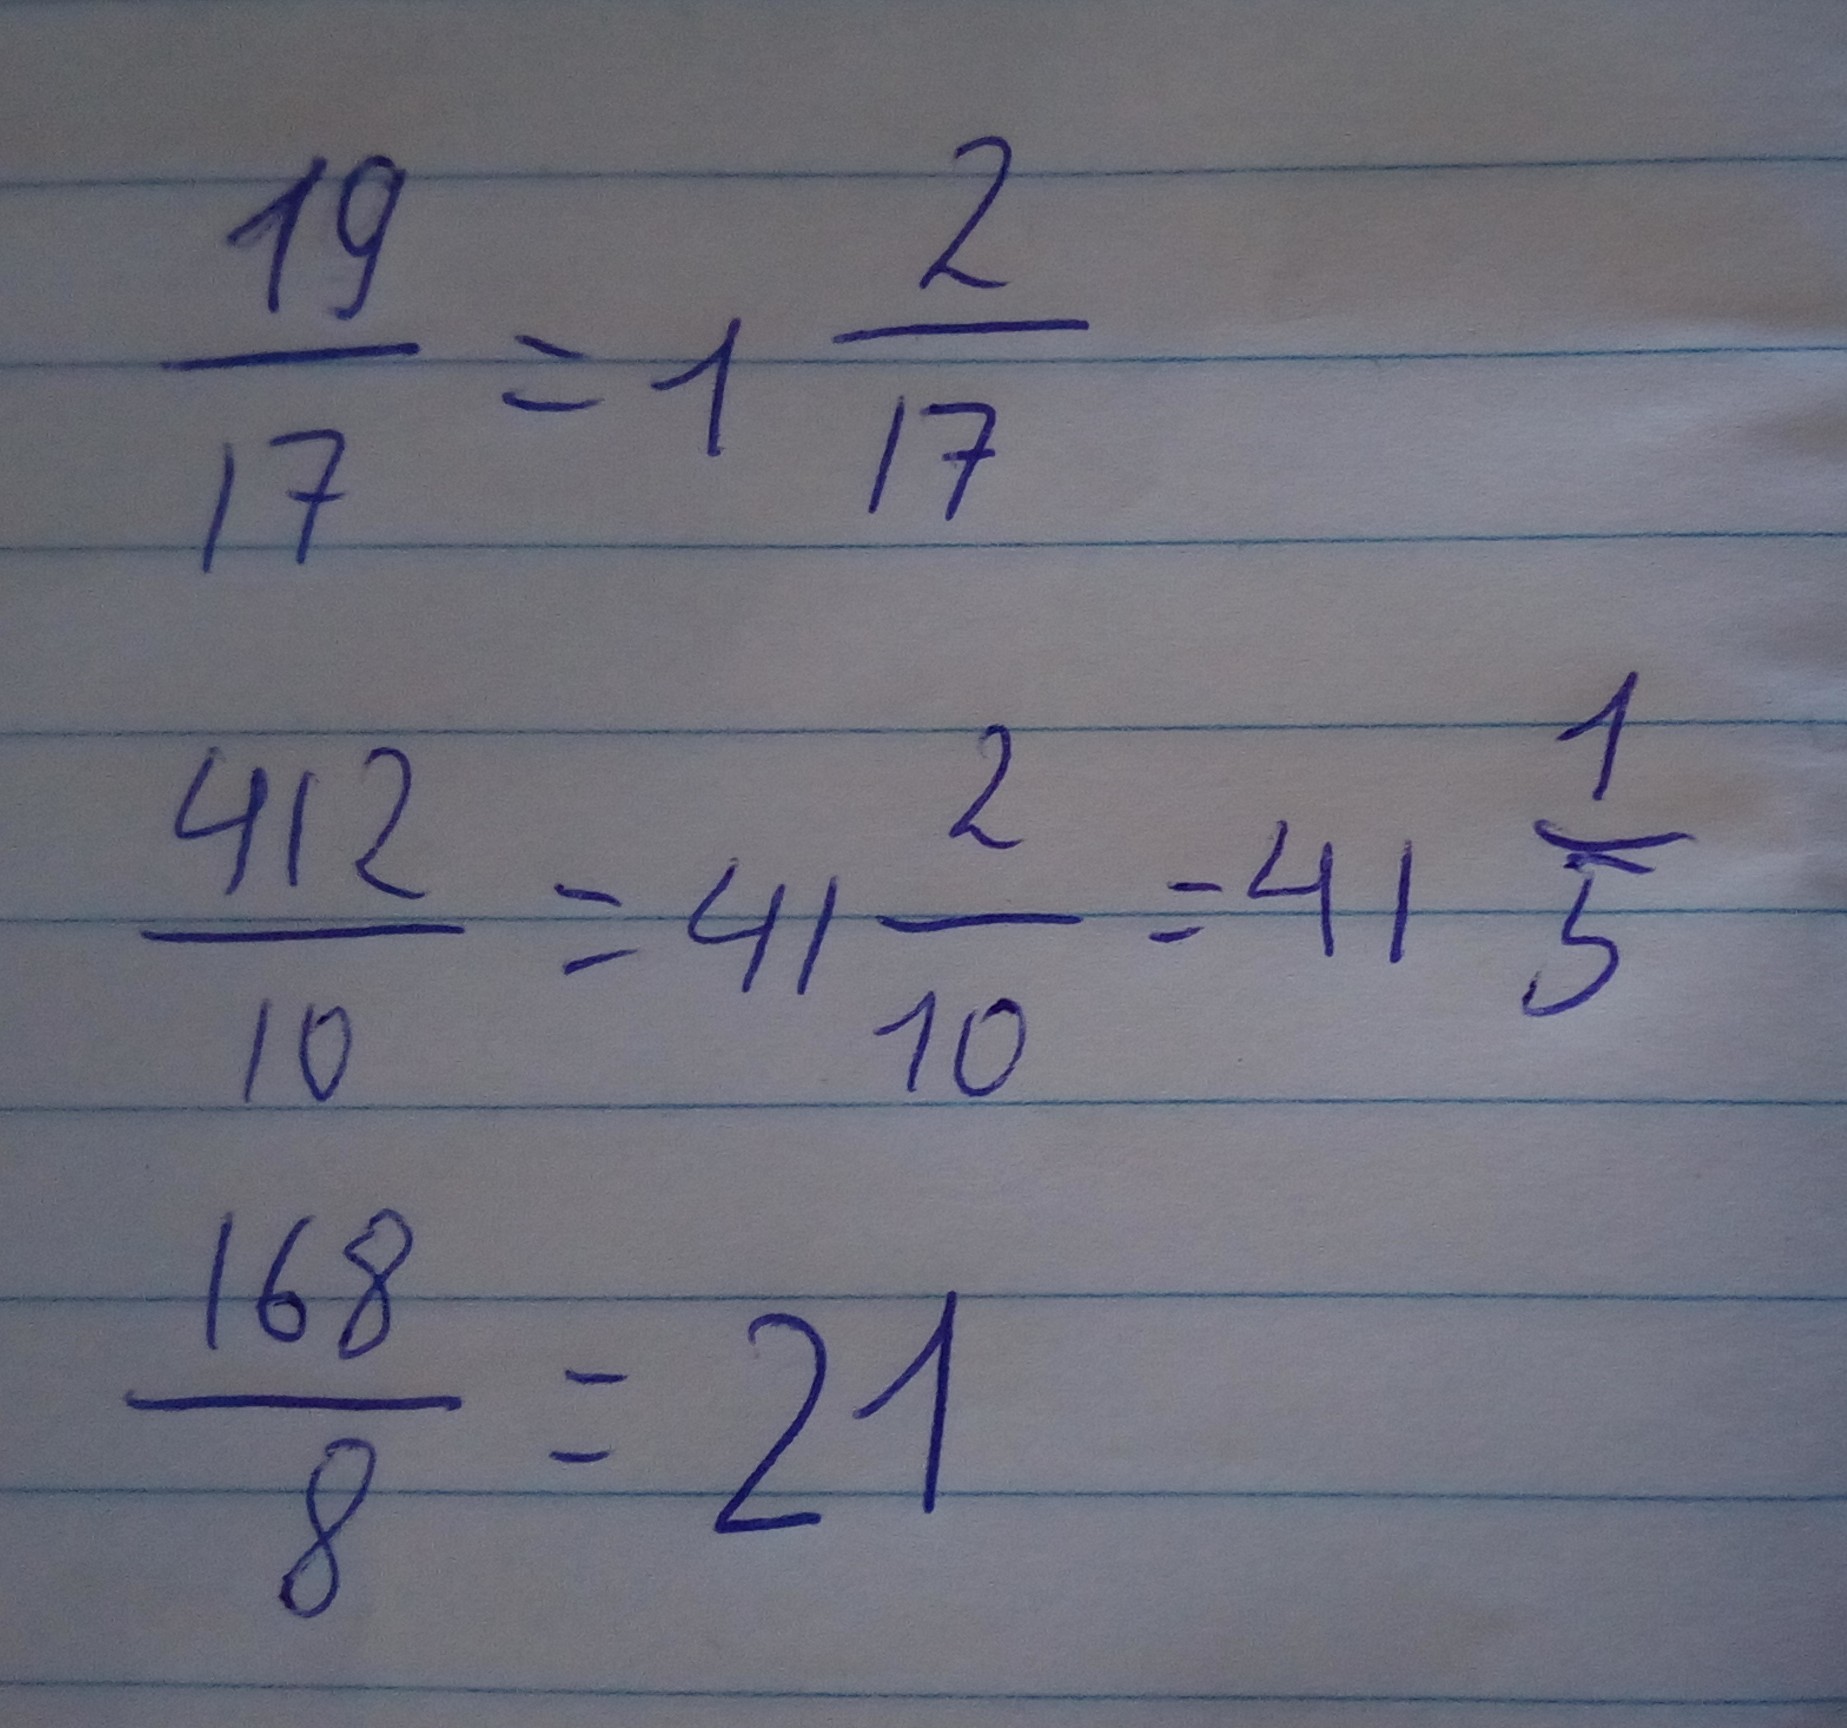 19/17 = 1 2/17
412/10 = 41 2/10 = 41 1/5
168/8 = 21